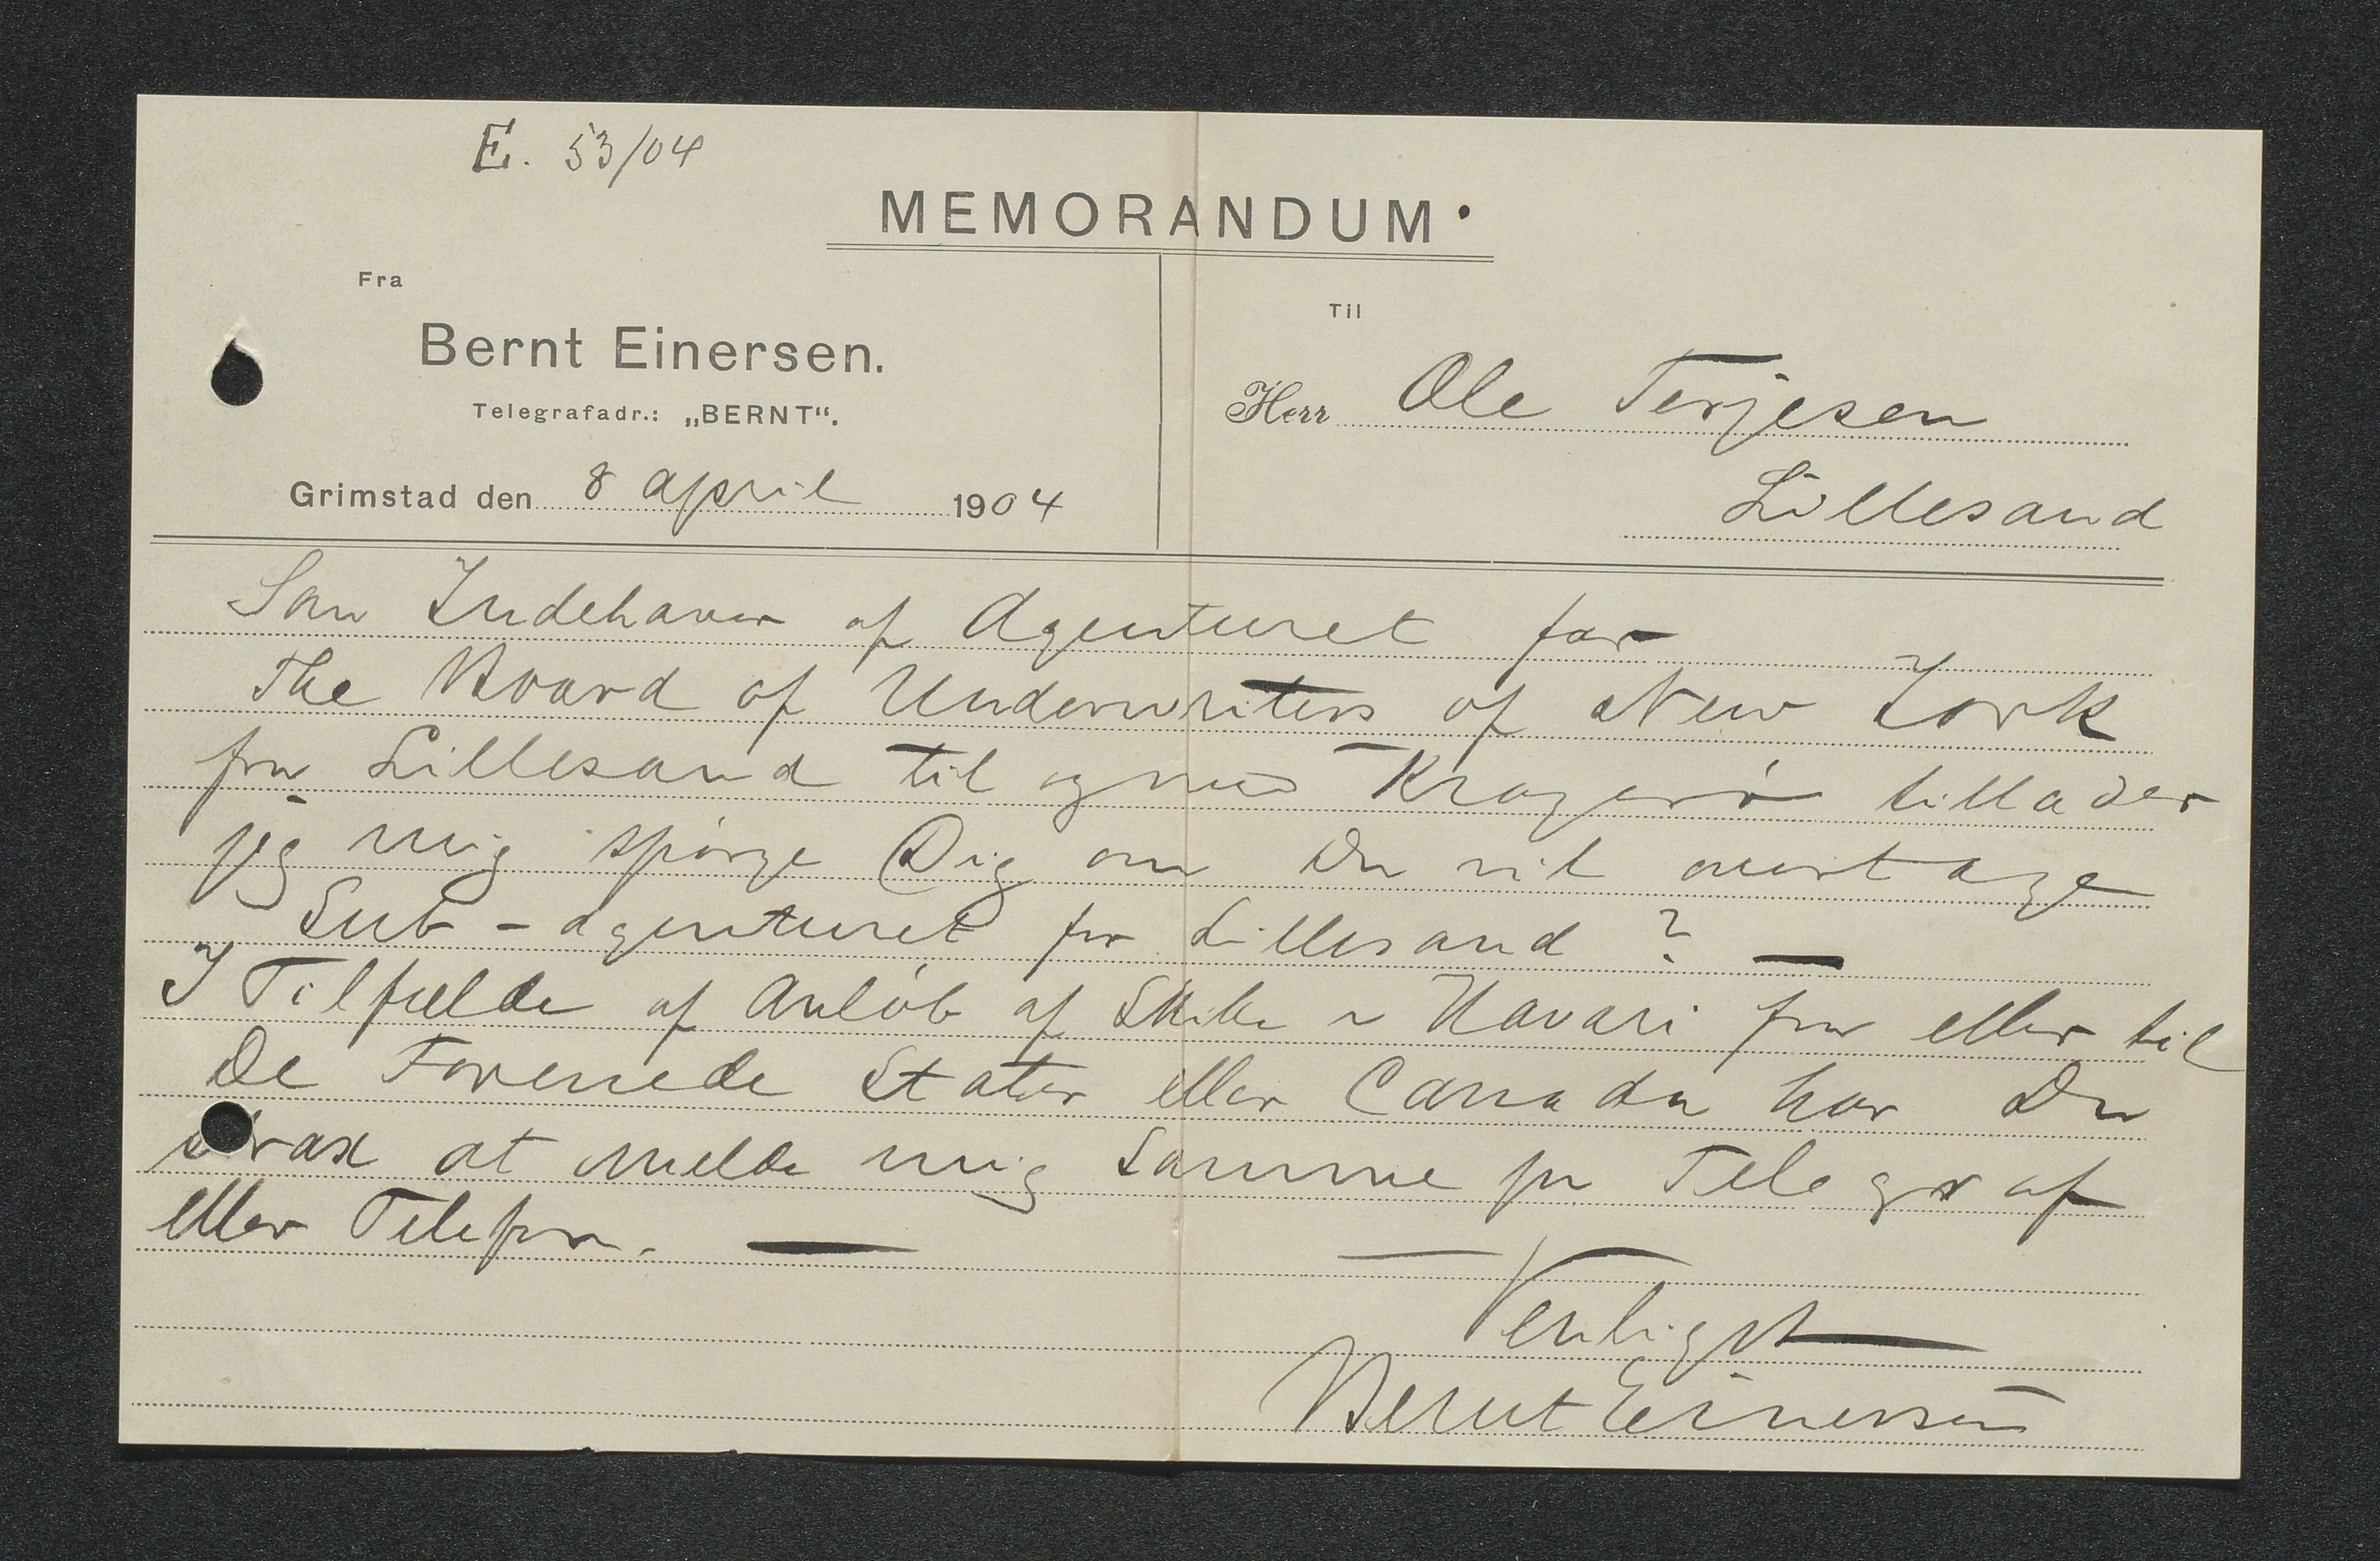 E. 53/04
MEMORANDUM.
Fra
Bernt Einersen.
Telegrafadr.: „BERNT“.
Grimstad den 8 april 1904
Til
Herr Ole Terjesen
Lillesand
Som Indehaver af Agenturet for
The Board of Underwriters of New York
fra Lillesand til og med Kragerö tillader
jeg mig spörge Dig om Du vil overtage
Sub-agenturet for Lillesand? —
I Tilfælde af Anlöb af Skibe i Havari fra eller til
De Forenede Stater eller Canada har Du
strax at melde mig samme pr Telegraf
eller Telefon. —
Venligst
Bernt Einersen